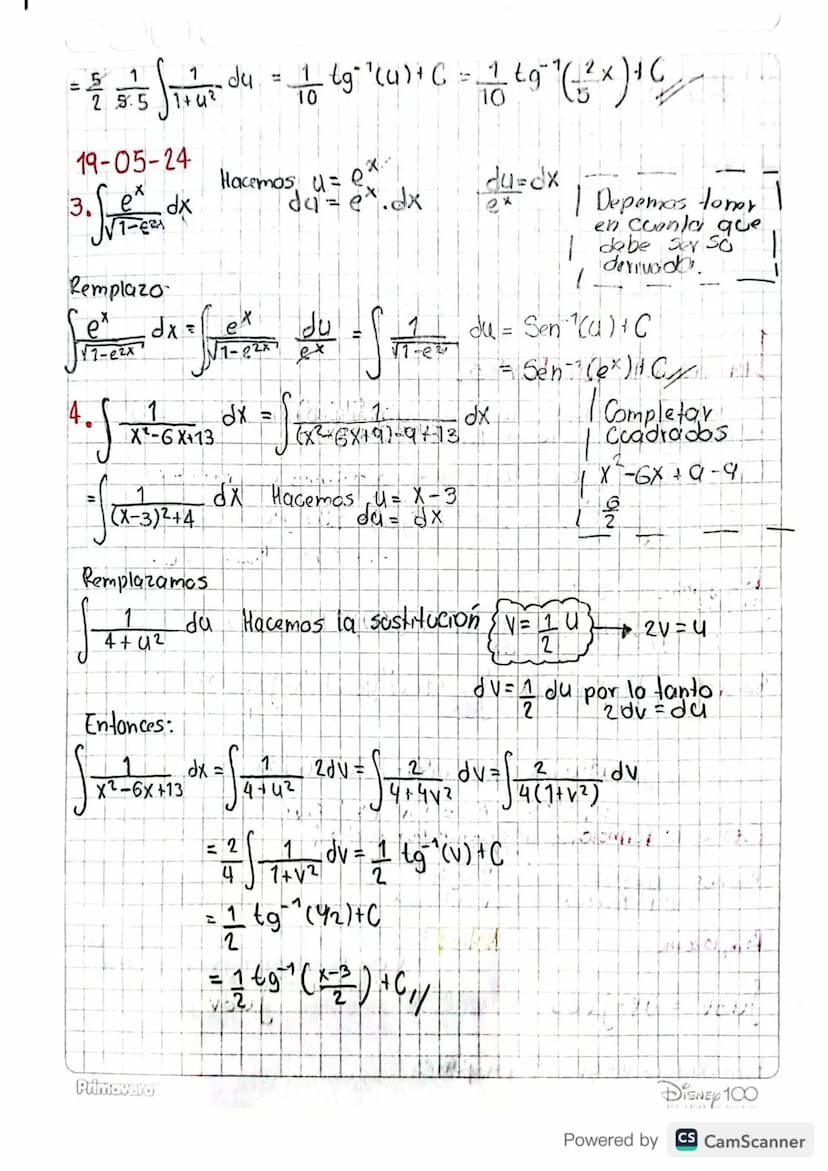 = 5/2 1/5.5 ∫ 1/1+u² du = 1/10 tg⁻¹(u)+C = 1/10 tg⁻¹(2/5 x)+C //
19-05-24
3. ∫ eˣ/√1-e²ˣ dx Hacemos u = eˣ du/eˣ = dx
du = eˣ.dx
Depemos tomar
en cuenta que
debe ser su
derivada.
Remplazo
∫ eˣ/√1-e²ˣ dx = ∫ eˣ/√1-e²ˣ du/eˣ = ∫ 1/√1-e²ˣ du = Sen⁻¹(u)+C
= Sen⁻¹(eˣ)+C //
4. ∫ 1/x²-6x+13 dx = ∫ 1/(x²-6x+9)-9+13 dx
Completar
Cuadrados
x²-6x+9-9
6/2
= ∫ 1/(x-3)²+4 dx Hacemos u = x-3
du = dx
Remplazamos
∫ 1/4+u² du Hacemos la sustitución v = 1/2 u → 2v = u
dv = 1/2 du por lo tanto
2dv = du
Entonces:
∫ 1/x²-6x+13 dx = ∫ 1/4+u² 2dv = ∫ 2/4+4v² dv = ∫ 2/4(1+v²) dv
= 2/4 ∫ 1/1+v² dv = 1/2 tg⁻¹(v)+C
= 1/2 tg⁻¹(u/2)+C
= 1/2 tg⁻¹(x-3/2)+C //
Primavera
Disney 100
Powered by CS CamScanner